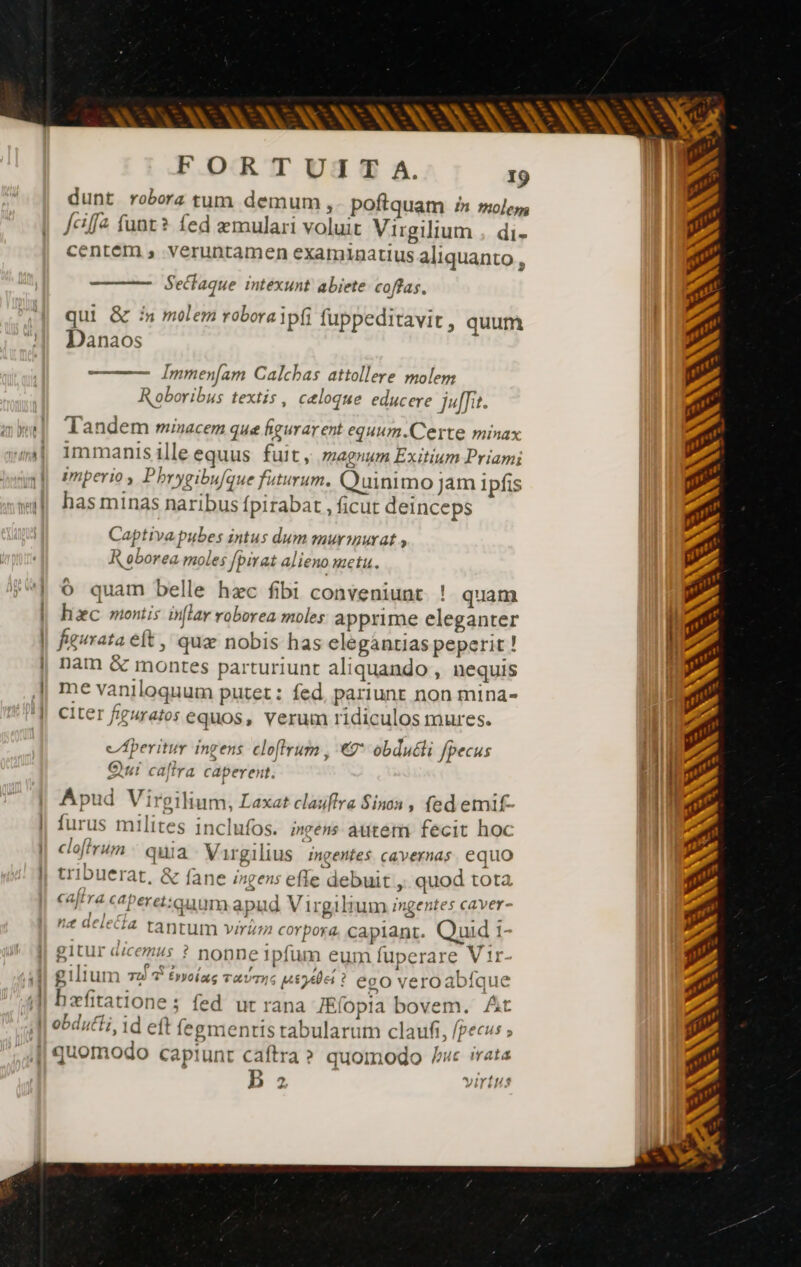 FORTUITA. 19
dunt robora tum demum, poſtquam in molem
ſciſſa ſunt? ſed æmulari voluit Virgilium, di-
centem, veruntamen examinatius aliquanto,
——— Sectaque intexunt abiete coſtas.
qui & in molem robora ipſi ſuppeditavit, quum
Danaos
——— Immenſam Calchas attollere molem
Roboribus textis, cæloque educere juſſit.
Tandem minacem quæ figurarent equum. Certe minax
immanis ille equus fuit, magnum Exitium Priami
imperio, Phrygibuſque futurum. Quinimo jam ipſis
has minas naribus ſpirabat, ſicut deinceps
Captiva pubes intus dum murmurat,
Roborea moles ſpirat alieno metu.
ô quam belle hæc ſibi conveniunt! quam
hæc montis inſtar roborea moles apprime eleganter
figurata eſt, quæ nobis has elegantias peperit!
nam & montes parturiunt aliquando, nequis
me vaniloquum putet: ſed pariunt non mina-
citer figuratos equos, verum ridiculos mures.
Aperitur ingens cloſtrum, & obducti ſpecus
Qui caſtra caperent.
Apud Virgilium, Laxat clauſtra Sinon, ſed emiſ-
ſurus milites incluſos. ingens autem fecit hoc
cloſtrum quia Virgilius ingentes cavernas equo
tribuerat, & ſane ingens eſſe debuit, quod tota
caſtra caperet: quum apud Virgilium ingentes caver-
næ delecta tantum virûm corpora capiant. Quid i-
gitur dicemus? nonne ipſum eum ſuperare Vir-
gilium τῷ τ ἐννοίας ταύτης μεγέθει? ego vero abſque
hæſitatione; ſed ut rana Æſopia bovem. At
obducti, id eſt ſegmentis tabularum clauſi, ſpecus,
quomodo capiunt caſtra? quomodo huc irata
B 2 virtus